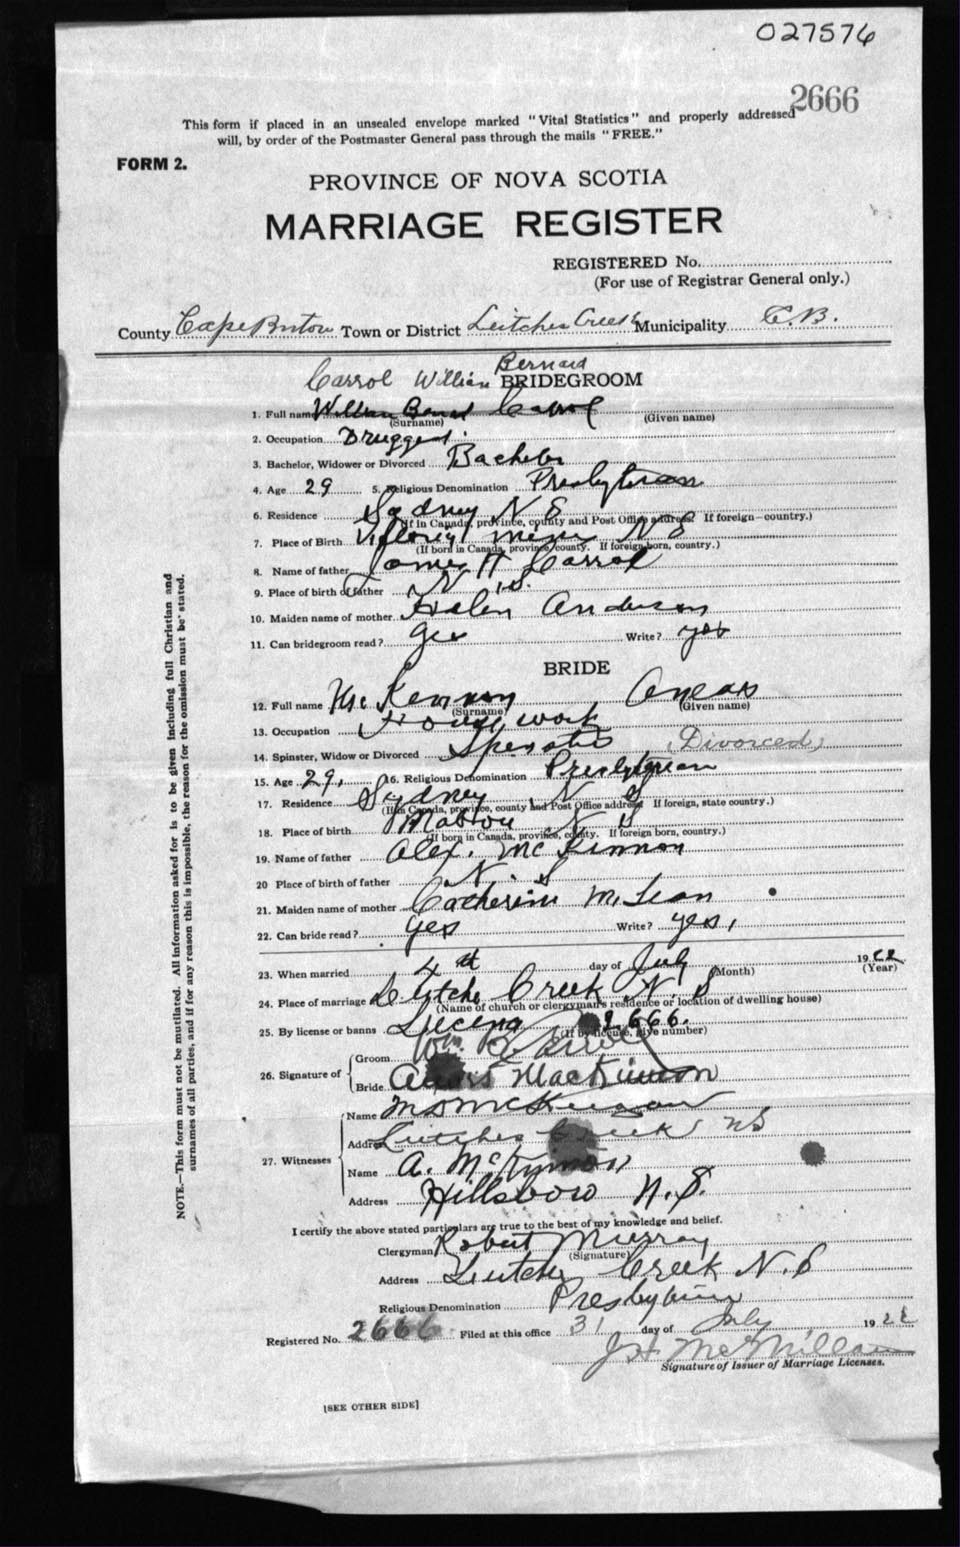 027576
2666
This form if placed in an unsealed envelope marked "Vital Statistics" and properly addressed
will, by order of the Postmaster General pass through the mails "FREE."
FORM 2.
PROVINCE OF NOVA SCOTIA
MARRIAGE REGISTER
REGISTERED No.
(For use of Registrar General only.)
County Cape Breton Town or District Leitches Creek Municipality C.B.
Bernard
Carrol William BRIDEGROOM
1. Full name William Bernard Carrol
(Surname) (Given name)
2. Occupation Druggest.
3. Bachelor, Widower or Divorced Bachelor
4. Age 29 5. Religious Denomination Presbyterian
6. Residence Sydney N S
(If in Canada, province, county and Post Office address. If foreign—country.)
7. Place of Birth N S
(If born in Canada, province, county. If foreign born, country.)
8. Name of father James H Carrol
9. Place of birth of father N. S.
10. Maiden name of mother Helen Anderson
11. Can bridegroom read? yes Write? yes
BRIDE
12. Full name Mc Kennon
(Surname) (Given name)
13. Occupation House work
14. Spinster, Widow or Divorced (Divorced)
15. Age 29, 16. Religious Denomination Presbyterian
17. Residence Sydney N S
(If in Canada, province, county and Post Office address If foreign, state country.)
18. Place of birth Mabou N S
(If born in Canada, province, county. If foreign born, country.)
19. Name of father Alex. McKinnon
20 Place of birth of father N. S
21. Maiden name of mother Catherine McLean
22. Can bride read? yes Write? yes,
23. When married 4th day of July 1922
(Month) (Year)
24. Place of marriage Leitches Creek N. S
(Name of church or clergyman's residence or location of dwelling house)
25. By license or banns 2666.
(If by license, give number)
26. Signature of
Groom Wm. Carroll
Bride MacKinnon
27. Witnesses
Name
Address Leitches Creek NS
Name A. McKynnon
Address Hillsboro N.S.
I certify the above stated particulars are true to the best of my knowledge and belief.
Clergyman Robert Murray
(Signature)
Address Leitches Creek N.S
Religious Denomination Presbyterian
Registered No. 2666 Filed at this office 31 day of July 1922
J H McMillan
Signature of Issuer of Marriage Licenses.
[SEE OTHER SIDE]
NOTE.—This form must not be mutilated. All information asked for is to be given including full Christian and
surnames of all parties, and if for any reason this is impossible, the reason for the omission must be stated.